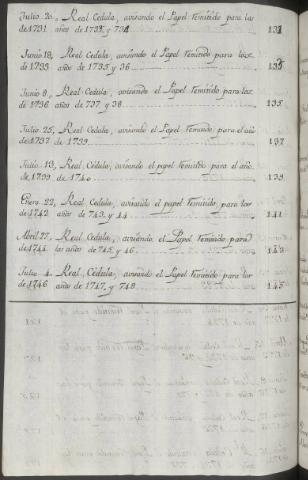 Julio 20., Real Cedula, avisando el Papel Remitido para los
de 1731 años de 1733, y 734 131
Junio 18, Real Cedula, avisando el Papel Remitido para los
de 1733 años de 1735 y 36 133
Junio 8, Real Cedula, avisando el Papel Remitido para los
de 1736 años de 737 y 38 135
Julio 25, Real Cedula, avisando el Papel Remitido, para el año
de 1737 de 1739 137
Julio 13, Real Cédula, avisando el papel Remitido para el año
de 1739 de 1740 139
Enero 22, Real Cedula, avisando el papel Remitido, para los
de 1742 años de 743, y 44 141
Abril 27, Real Cedula, avisando, el Papel Remitido, para
de 1744 los años de 745, y 46 143
Julio 4 Real Cedula, avisando el Papel Remitido para los
de 1746 años de 1747, y 748 145